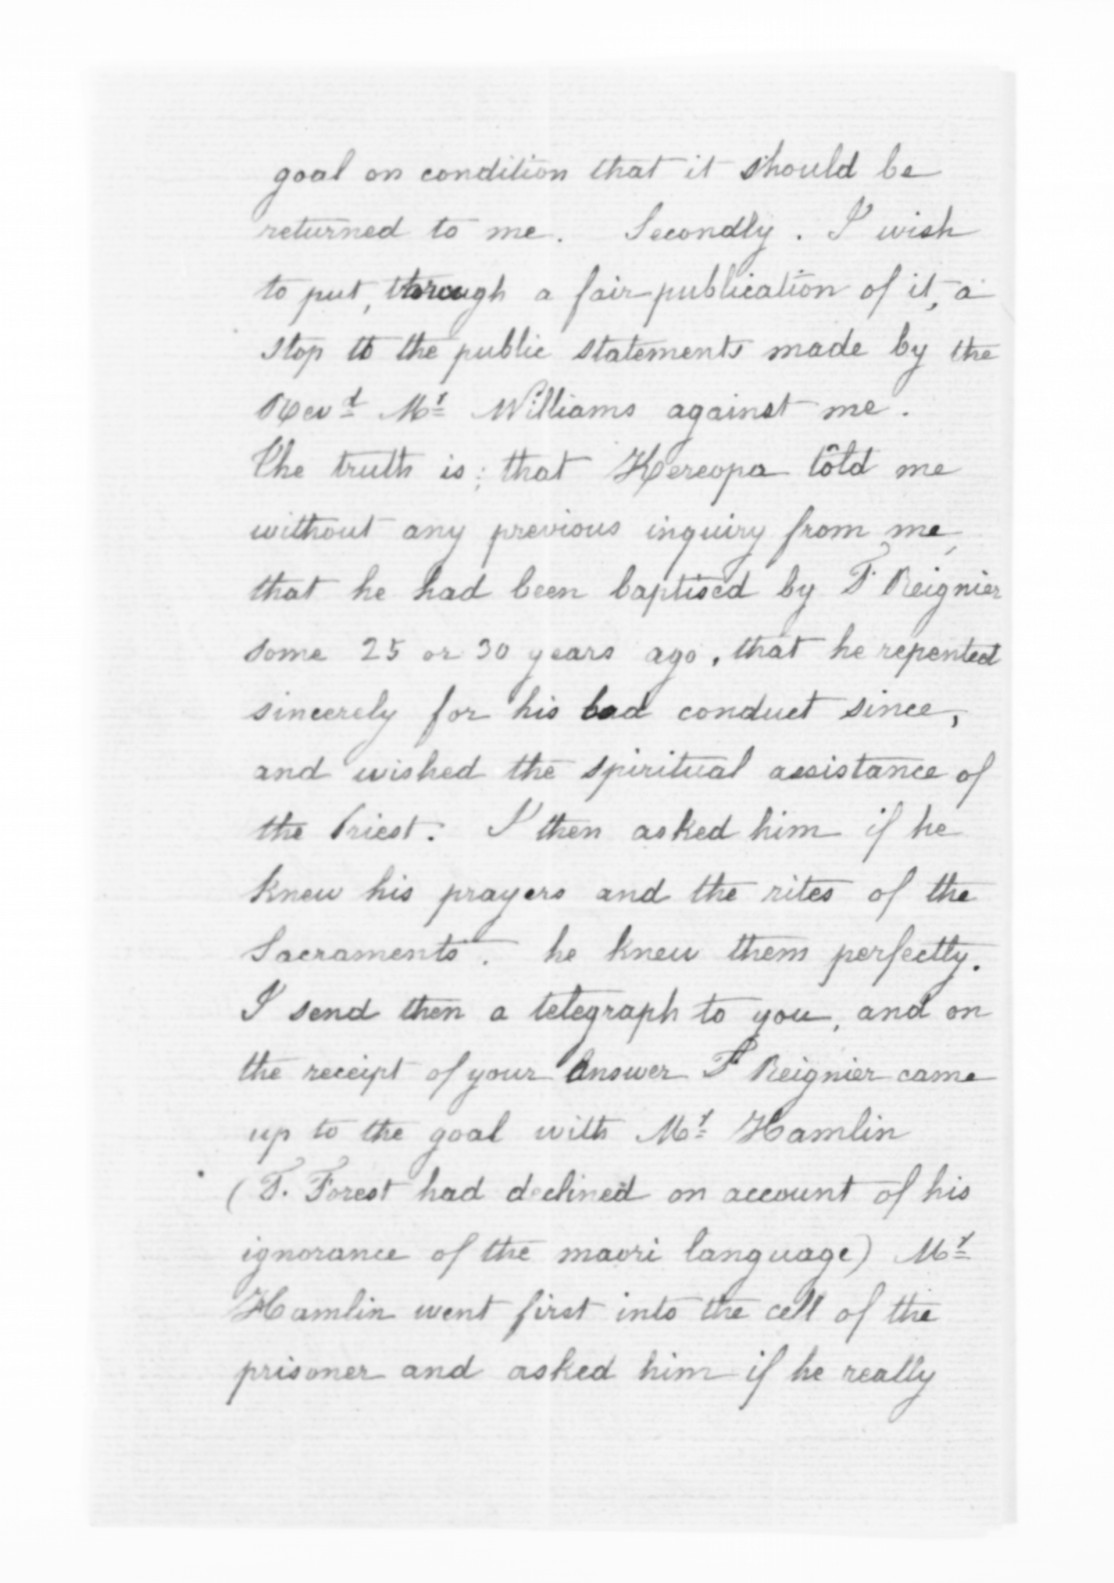 goal on condition that it should be
returned to me. Secondly. I wish
to put, through a fair publication of it, a
stop to the public statements made by the
Revd Mr Williams against me.
The truth is; that Kereopa told me
without any previous inquiry from me,
that he had been baptised by F. Reignier
some 25 or 30 years ago, that he repented
sincerely for his bad conduct since,
and wished the spiritual assistance of
the Priest. I then asked him if he
knew his prayers and the rites of the
Sacraments. he knew them perfectly.
I send then a telegraph to you, and on
the receipt of your Answer F. Reignier came
up to the goal with Mr Hamlin
(F. Forest had declined on account of his
ignorance of the maori language) Mr
Hamlin went first into the cell of the
prisoner and asked him if he really